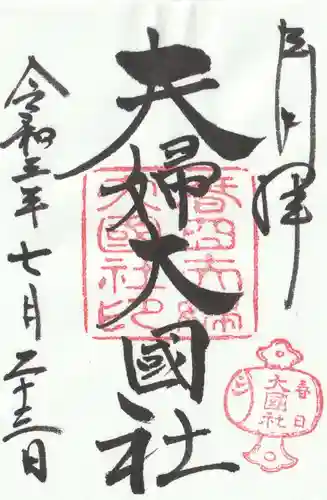 奉拝
夫婦大國社
令和三年七月二十三日
春日大國社印
春日
大國社